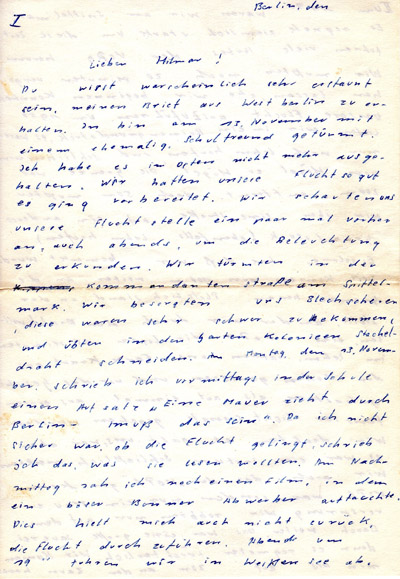 I
Berlin, den
Lieber Hilmar!
Du wirst warscheinlich sehr erstaunt
sein, meinen Brief aus Westberlin zu er-
halten. Ich bin am 13. November mit
einem ehemalig. Schulfreund getürmt.
Ich habe es in Osten nicht mehr ausge-
halten. Wir hatten unsere Flucht so gut
es ging vorbereitet. Wir schauten uns
unsere Fluchtstelle ein paar mal vorher
an, auch abends, um die Beleuchtung
zu erkunden. Wir türmten in der
Kommandantenstraße am Spittel-
mark. Wir besorgten uns Blechscheren
, diese waren sehr schwer zu bekommen,
und übten in den Garten Kolonieen Stachel-
draht schneiden. Am Montag, den 13. Novem-
ber, schrieb ich vormittags in der Schule
einen Aufsatz „Eine Mauer zieht durch
Berlin - muß das sein". Da ich nicht
sicher war, ob die Flucht gelingt, schrieb
ich das, was sie lesen wollten. Am Nach-
mittag sah ich noch einen Film, in dem
ein böser Bonner Abwerber auftauchte.
Dies hielt mich auch nicht zurück,
die Flucht durchzuführen. Abend um
19 fuhren wir in Weißensee ab.